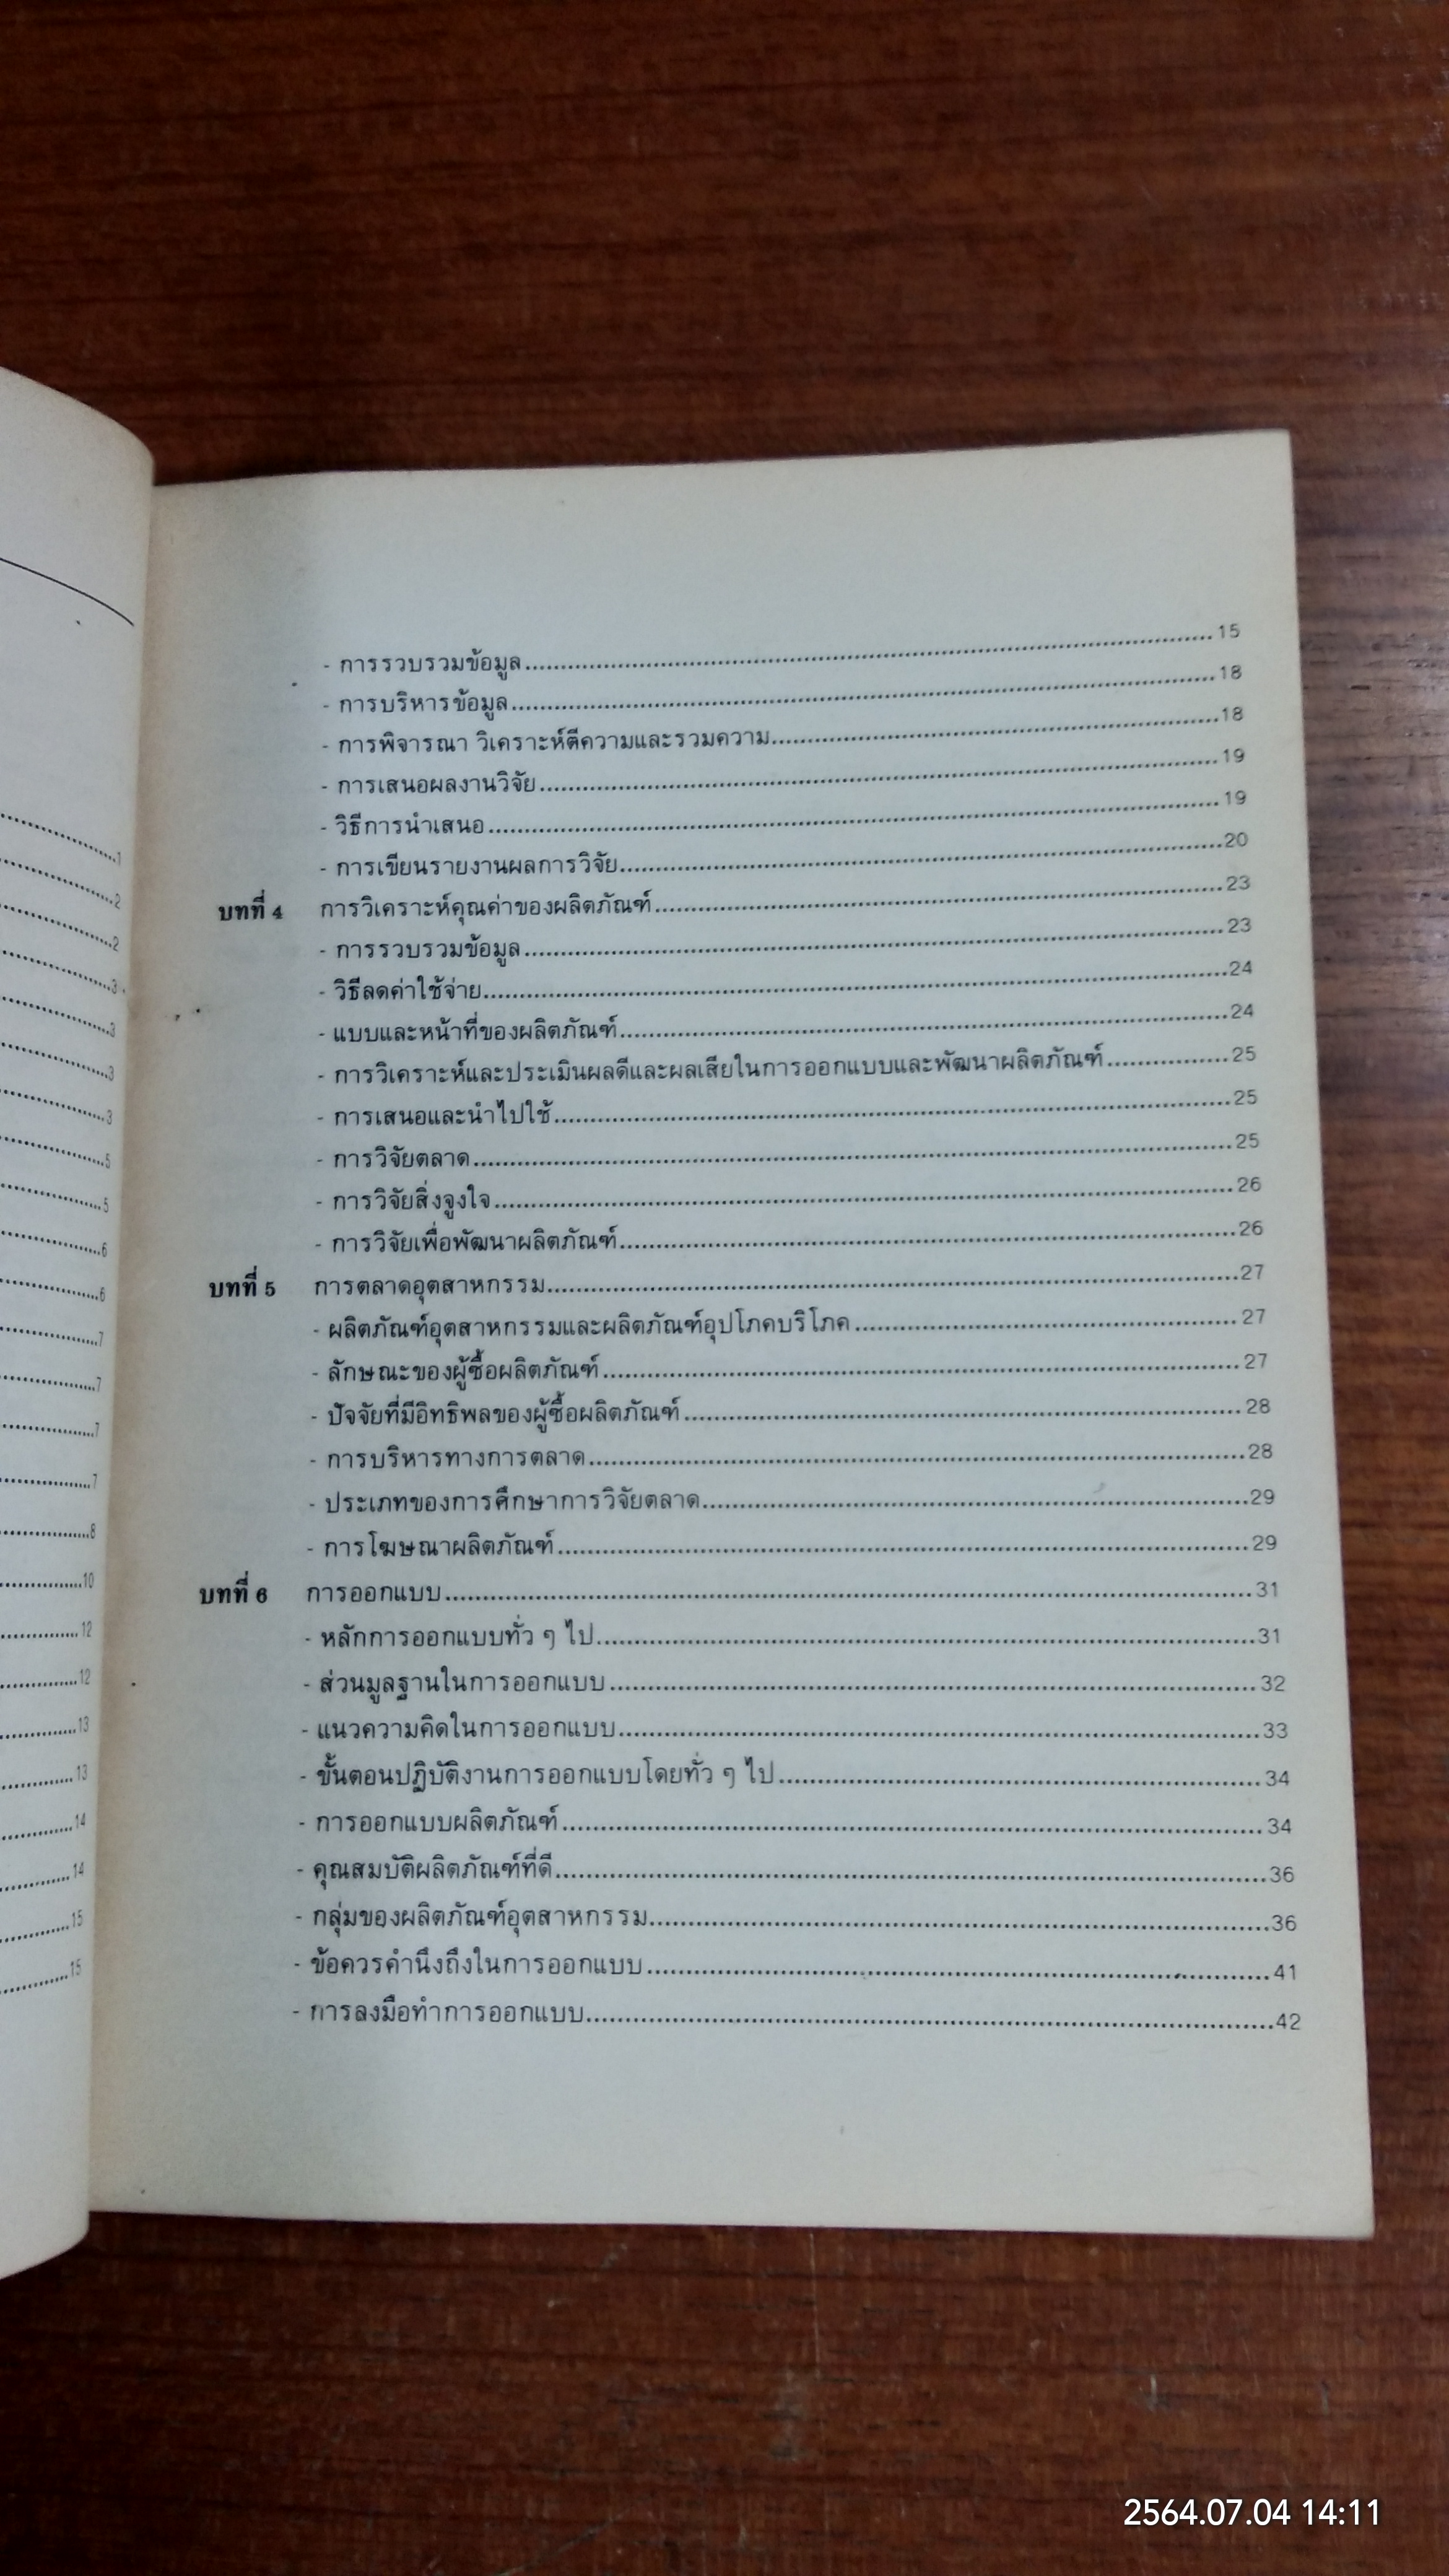 1
2
2
3
3
3
3
5
5
6
6
7
7
7
7
8
10
12
12
13
13
14
14
15
15
- การรวบรวมข้อมูล 15
- การบริหารข้อมูล 18
- การพิจารณา วิเคราะห์ตีความและรวมความ 18
- การเสนอผลงานวิจัย 19
- วิธีการนำเสนอ 19
- การเขียนรายงานผลการวิจัย 20
บทที่ 4 การวิเคราะห์คุณค่าของผลิตภัณฑ์ 23
- การรวบรวมข้อมูล 23
- วิธีลดค่าใช้จ่าย 24
- แบบและหน้าที่ของผลิตภัณฑ์ 24
- การวิเคราะห์และประเมินผลดีและผลเสียในการออกแบบและพัฒนาผลิตภัณฑ์ 25
- การเสนอและนำไปใช้ 25
- การวิจัยตลาด 25
- การวิจัยสิ่งจูงใจ 26
- การวิจัยเพื่อพัฒนาผลิตภัณฑ์ 26
บทที่ 5 การตลาดอุตสาหกรรม 27
- ผลิตภัณฑ์อุตสาหกรรมและผลิตภัณฑ์อุปโภคบริโภค 27
- ลักษณะของผู้ซื้อผลิตภัณฑ์ 27
- ปัจจัยที่มีอิทธิพลของผู้ซื้อผลิตภัณฑ์ 28
- การบริหารทางการตลาด 28
- ประเภทของการศึกษาการวิจัยตลาด 29
- การโฆษณาผลิตภัณฑ์ 29
บทที่ 6 การออกแบบ 31
- หลักการออกแบบทั่ว ๆ ไป 31
- ส่วนมูลฐานในการออกแบบ 32
- แนวความคิดในการออกแบบ 33
- ขั้นตอนปฏิบัติงานการออกแบบโดยทั่ว ๆ ไป 34
- การออกแบบผลิตภัณฑ์ 34
- คุณสมบัติผลิตภัณฑ์ที่ดี 36
- กลุ่มของผลิตภัณฑ์อุตสาหกรรม 36
- ข้อควรคำนึงถึงในการออกแบบ 41
- การลงมือทำการออกแบบ 42
2564.07.04 14:11